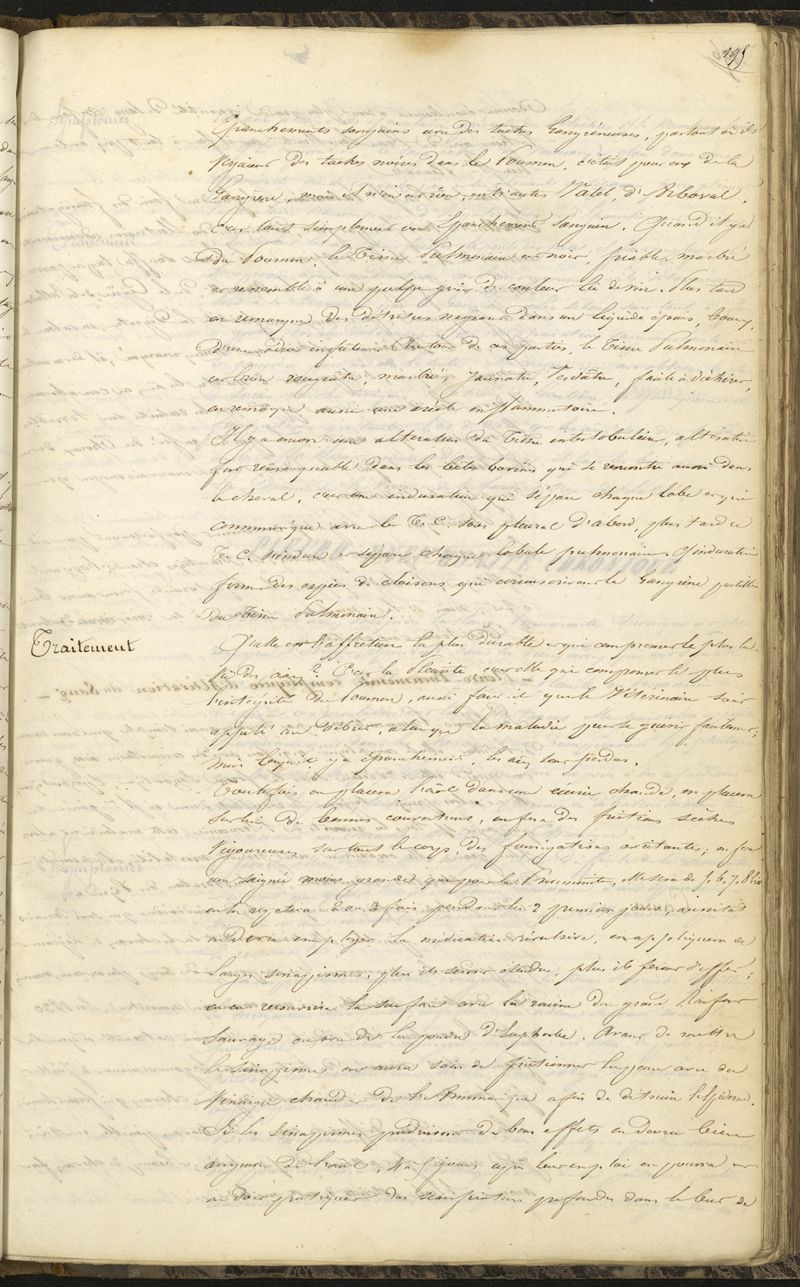 195
Epanchements sanguins avec des taches Gangréneuses, partout où ils
voyaient des taches noires dans le Poumon, c'était pour eux de la
Gangrène, mais il n'en est rien, entr'autres Vatel, d'Arboval.
c'est tout simplement un Epanchement sanguin. Quand il y a
du Poumon, le Tissu Pulmonaire est noir, friable, marbré
et ressemble à une pulpe grise de couleur lie de vin. Plus tard
on remarque des détritus nageant dans un liquide épais, bourbeux,
d'une odeur infecte. Autour de ces parties, le Tissu Pulmonaire
est brun rougeâtre, marbré, jaunâtre, verdâtre, facile à déchirer,
on remarque aussi une aréole inflammatoire.
Il y a encore une altération du Tissu interlobulaire, altération
fort remarquable dans les bêtes bovines qui se rencontre aussi dans
le cheval, c'est une induration qui sépare chaque lobe et qui
communique avec le T. C. sous pleural d'abord, plus tard ce
T. C. s'indure et sépare chaque lobule pulmonaire. L'induration
forme des espèces de cloisons qui circonscrivent la Gangrène partielle
du Tissu Pulmonaire.
Traitement
Quelle est l'affection la plus durable et qui compromet le plus la
vie des aux? C'est la Pleurite, c'est elle qui compromet le plus
l'intégrité du Poumon, aussi faut-il que le Vétérinaire soit
appelé au début, alors que la maladie peut se guérir facilement;
mais lorsqu'il y a épanchement, les aux sont perdus.
Toutefois on placera l'aal dans une écurie chaude, on placera
sur lui de bonnes couvertures, on fera des frictions sèches
vigoureuses sur tout le corps, des fumigations excitantes; on fera
une saignée moins grande que pour la Pneumonite, elle sera de 5. 6. 7. 8 liv
on la répètera 2 ou 3 fois pendant les 2 premiers jours, aussitôt
on devra employer la médication révulsive, on appliquera de
larges sinapismes, plus ils seront étendus, plus ils feront d'effet;
on en recouvrira la surface avec la racine du grand Raifort
sauvage ou avec de la poudre d'Euphorbe. Avant de mettre
le sinapisme on aura soin de frictionner la peau avec du
vinaigre chaud et de l'Ammoniaque afin de détruire l'épiderme.
Si les sinapismes produisent de bons effets on devra bien
augurer de l'aal, h après leur emploi on pourra et
on doit pratiquer des scarifications profondes dans le lieu de